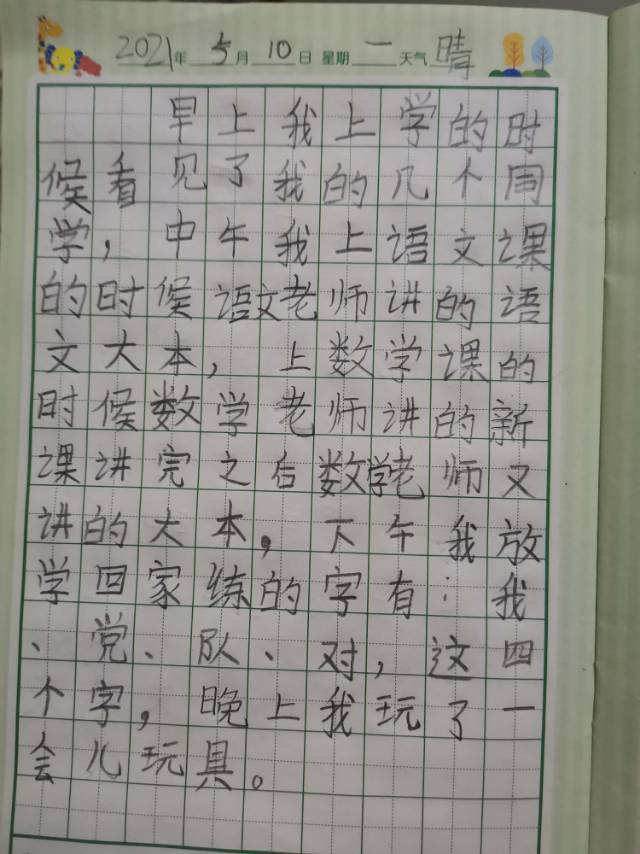 2021年5月10日 星期一 天气晴
早上我上学的时
候看见了我的几个同
学，中午我上语文课
的时候语文老师讲的语
文大本，上数学课的
时候数学老师讲的新
课讲完之后数学老师又
讲的大本，下午我放
学回家练的字有：我
、党、队、对，这四
个字，晚上我玩了一
会儿玩具。